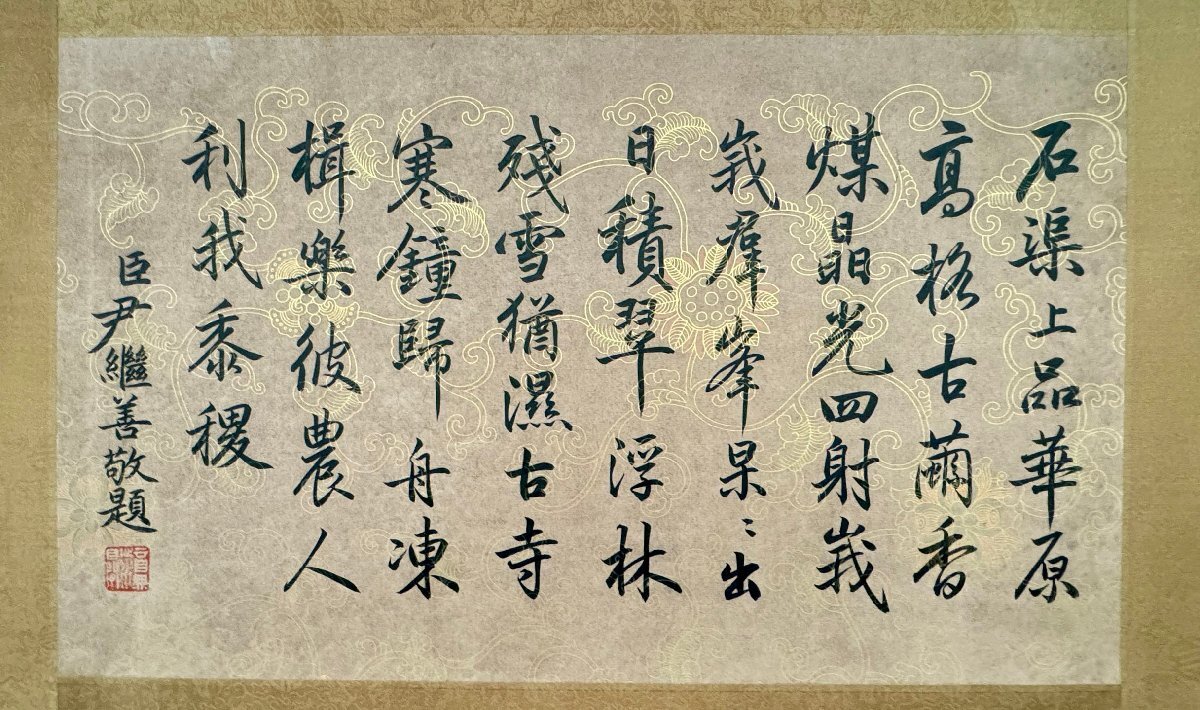 石渠上品華原
高格古繭香
煤晶光四射峩
峩群峯杲〻出
日積翠浮林
殘雪猶濕古寺
寒鐘歸舟凍
楫樂彼農人
利我黍稷
臣尹繼善敬題